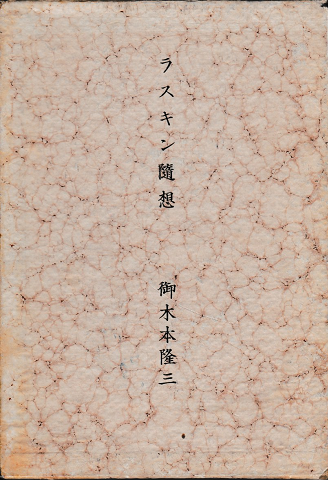 ラスキン隨想
御木本隆三